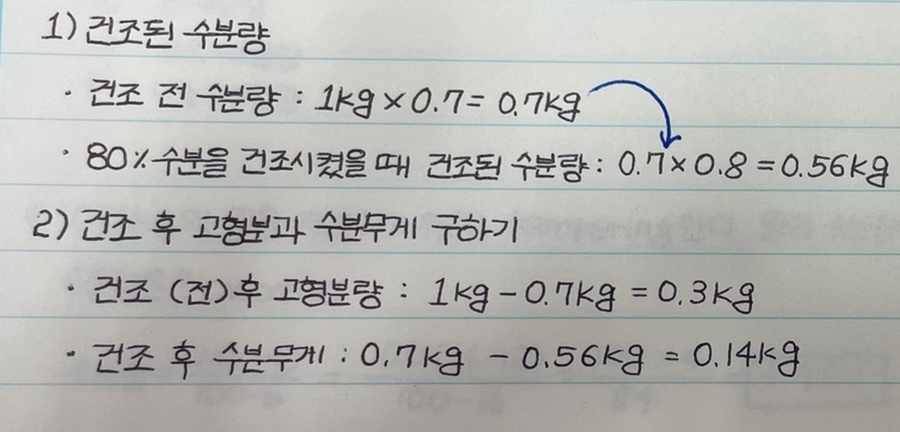 1) 건조된 수분량
· 건조 전 수분량 : 1kg × 0.7 = 0.7kg
· 80% 수분을 건조시켰을 때 건조된 수분량 : 0.7 × 0.8 = 0.56kg
2) 건조 후 고형분과 수분무게 구하기
· 건조 (전)후 고형분량 : 1kg - 0.7kg = 0.3kg
· 건조 후 수분무게 : 0.7kg - 0.56kg = 0.14kg